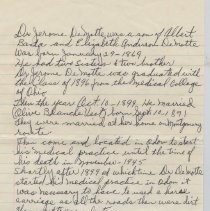 Dr Jerome DeMotte was a son of Albert
and Elizabeth Anderson DeMotte
was born January 29-1869
He had two Sisters & two brother
Dr Jerome DeMotte was graduated with
the Class of 1896 from the Medical College
of Ohio
Then the year Oct. 10-1899, He Married
Olive Blanche
they were married at her home on Montgomery
route
Then came and located in Odon to start
his medical practice until the time of
his death in November-1945
Shortly after 1899 of which time Dr. DeMotte
started his medical practice in Odon it
was necessary to have & used a horse
carriage as all the roads then were dirt